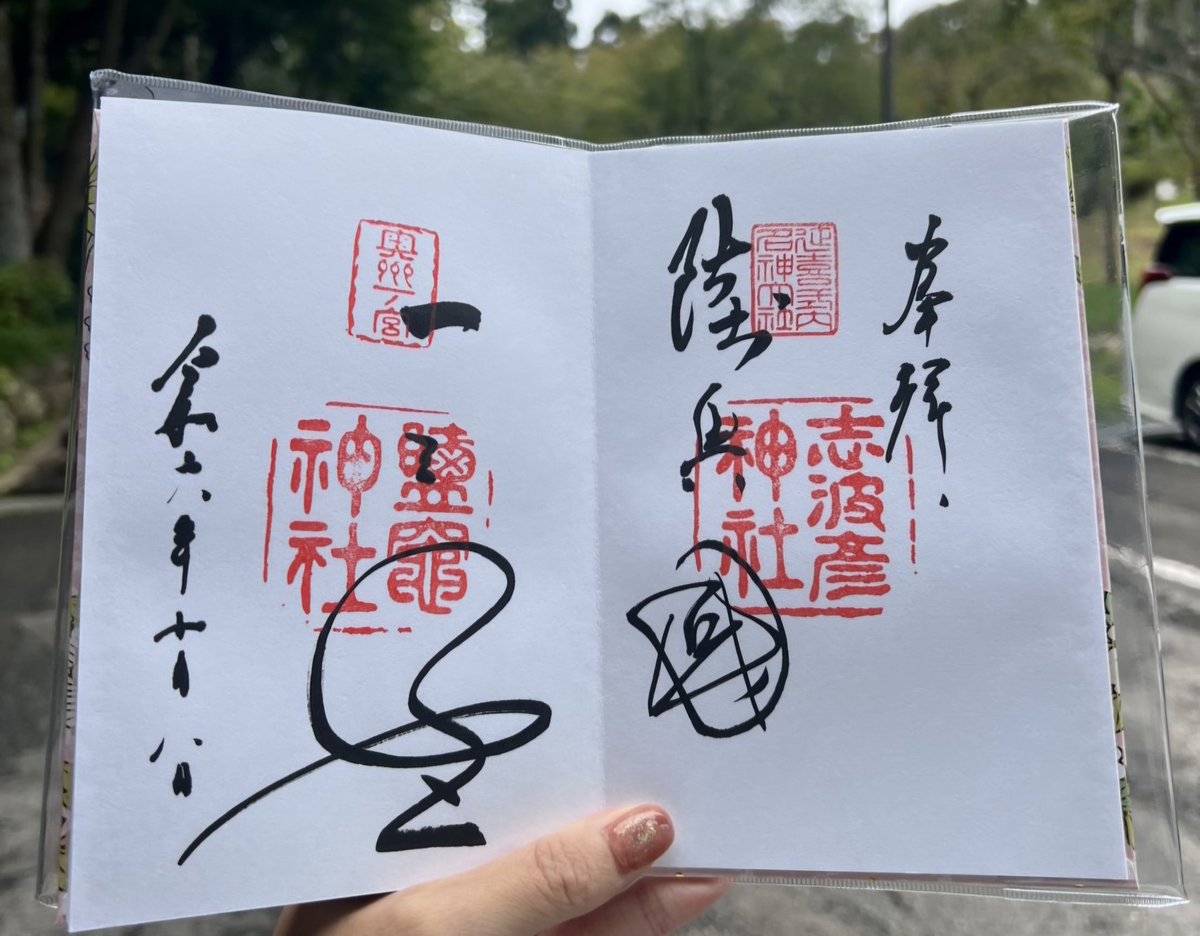 奉拝
延喜式内
名神大社
志波彦
神社
陸奥國
奥州一ノ宮
鹽竈
神社
一之宮
令和六年十月八日